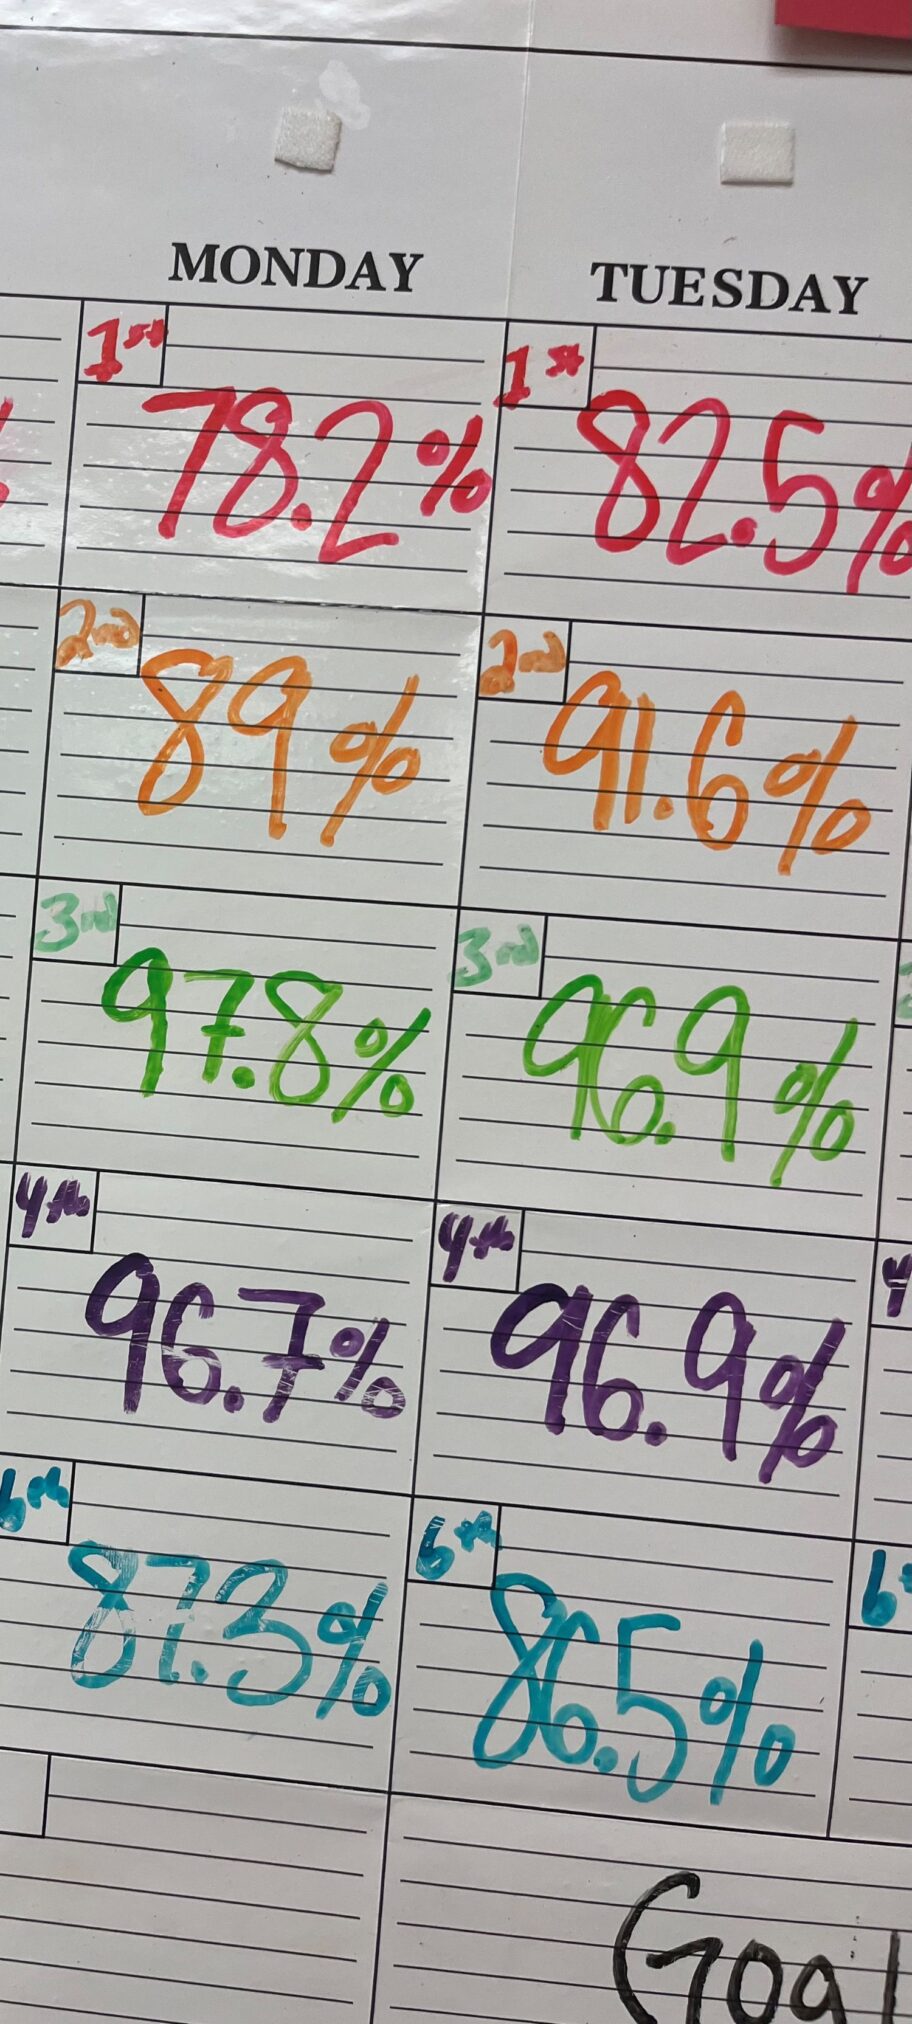 MONDAY TUESDAY
1st 1st
78.2% 82.5%
2nd 2nd
89% 91.6%
3rd 3rd
97.8% 96.9%
4th 4th
96.7% 96.9%
6th 6th
87.3% 86.5%
Goal